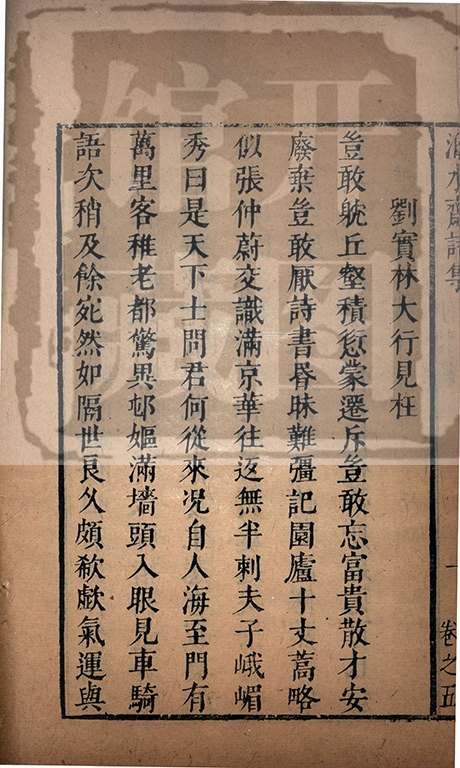 激水齋詩集
卷之五
劉實林大行見枉
豈敢躭丘壑積愆蒙遷斥豈敢忘富貴散才安
廢棄豈敢厭詩書昬昧難彊記園廬十丈蒿略
似張仲蔚交識滿京華往返無半刺夫子峨嵋
秀曰是天下士問君何從來况自人海至門有
萬里客稚老都驚異邨嫗滿墻頭入眼見車騎
語次稍及餘宛然如隔世良久頗欷歔氣運與